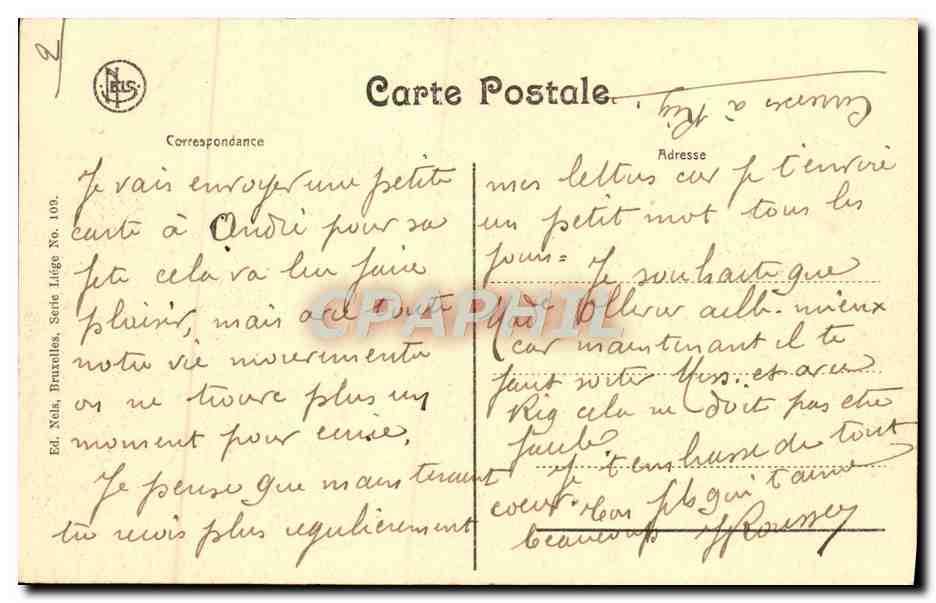 2
NELS
Carte Postale
Caresses à Rig.
Correspondance
Adresse
Ed. Nels, Bruxelles, Serie Liége No. 109.
Je vais envoyer une petite
carte à André pour sa
fete cela va lui faire
plaisir, mais avec toute
notre vie mouvementee
on ne trouve plus un
moment pour ecrire.
Je pense que maintenant
tu recois plus regulierement
mes lettres car je t'envoie
un petit mot tous les
jours = Je souhaite que
Made Ollerer aille mieux
car maintenant il te
faut sortir Miss. et avec
Rig cela ne doit pas etre
facile
Je t'embrasse de tout
coeur. Ton fils qui t'aime
beaucoup
CPAPHIL